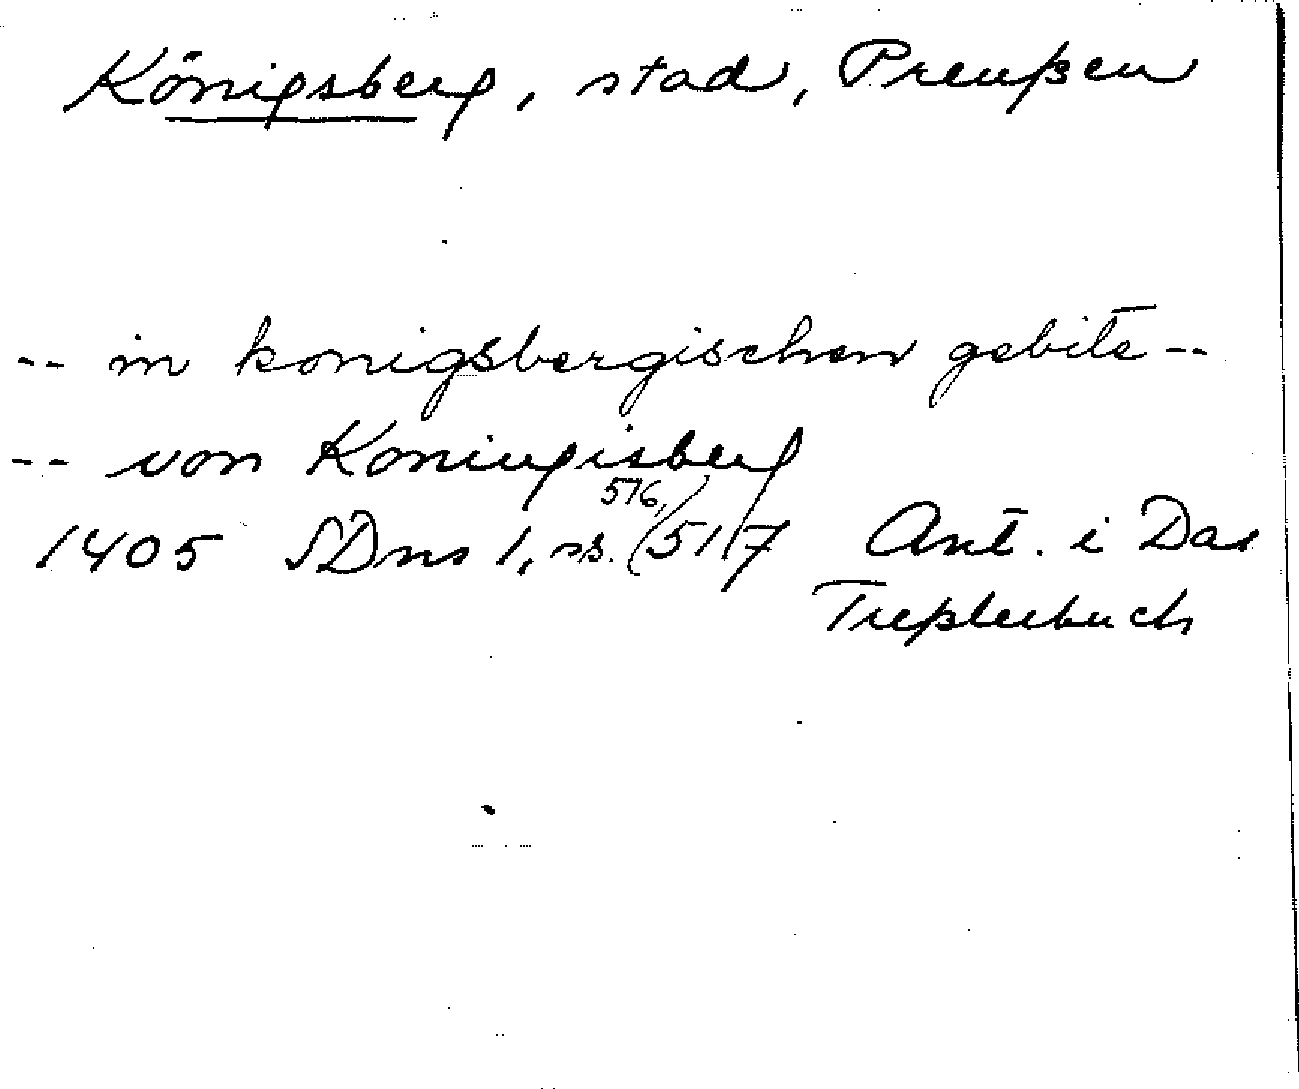 Königsberg, stad, Preußen
-- in konigsbergischen gebite --
-- von Koningisberg
576,
1405 SDns 1, ss. (517 Ant. i Das
Treßlerbuch